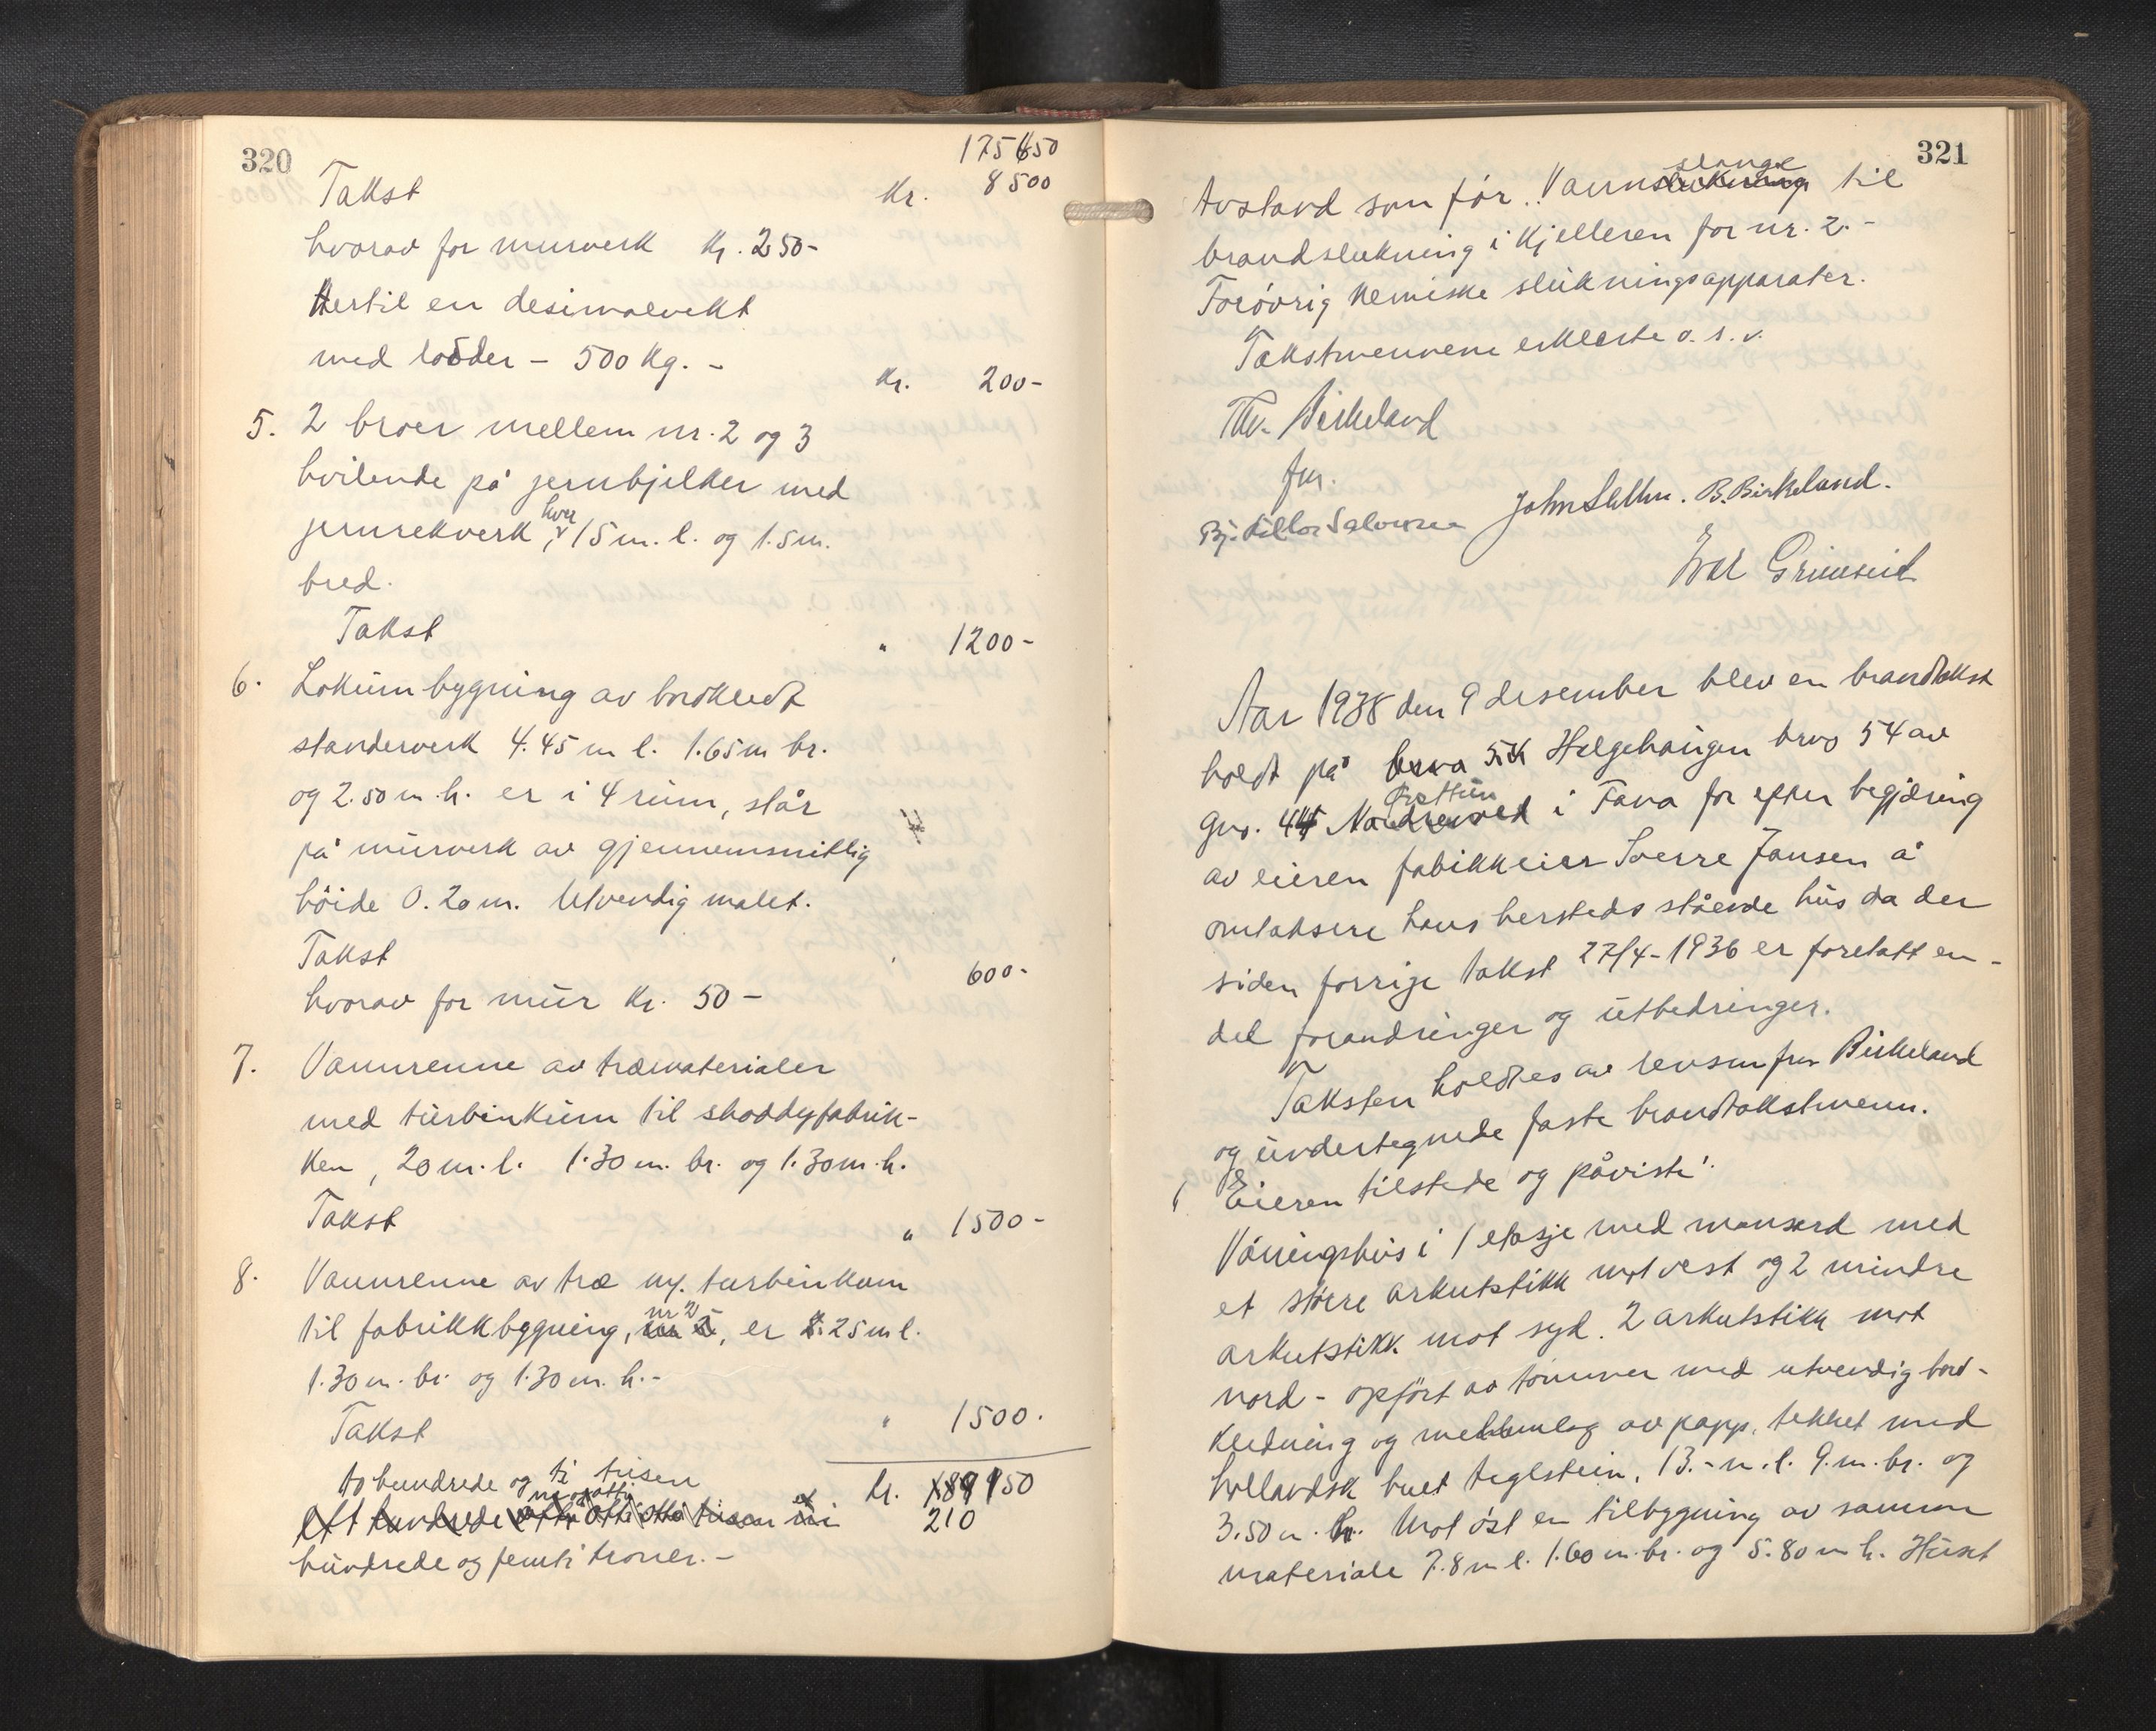 320
175650
Takst Kr. 8500
hvorav for murverk Kr. 250-
Hertil en desimalvekt
med lodder - 500 Kg. - Kr. 200-
5. 2 broer mellem nr. 2 og 3
hvilende på jernbjelker med
jernrekverk, hver 15 m. l. og 1.5 m.
bred.
Takst " 1200-
6. Lokumbygning av bordkledt
standerverk 4.45 m l. 1.65 m br.
og 2.50 m. h. er i 4 rum, står
på murverk av gjennemsnittlig
höide 0.20 m. Utvendig malet.
Takst 600-
hvorav for mur Kr. 50-
7. Vannrenne av træmaterialer
med turbinkum til shoddyfabrik-
ken, 20 m. l. 1.30 m. br. og 1.30 m. h.
Takst " 1500-
8. Vannrenne av træ m/. turbinkum
til fabrikkbygning, nr 2, er 25 m l.
1.30 m. br. og 1.30 m. h. -
Takst " 1500.
to hundrede og ti tusen Kr. 189150
ett hundrede tusen et 210
hundrede og femti kroner. -
321
Avstand som för. Vannslange til
brandslukning i Kjelleren for nr. 2. -
Forövrig Kemiske slukningsapparater.
Takstmennene erklærte o. s. v.
Thv. Birkeland
fm.
John Sælthun. B. Birkeland.
Ivar Grimseid
Aar 1938 den 9 desember blev en brandtakst
holdt på Helgehaugen brno 54 av
gno. 44 Nordre Grettun i Fana for efter begjæring
av eieren fabikkeier Sverre Jansen å
omtaksere hans herstedo stående hus da der
siden forrige takst 27/4-1936 er foretatt en-
del forandringer og utbedringer.
Taksten holdtes av lensm. fm. Birkeland
og undertegnede faste brandtakstmenn.
Eieren tilstede og påviste:
Våningshus i 1 etasje med mansard med
et större arkutstikk mot vest og 2 mindre
arkutstikk mot syd. 2 arkutstikk mot
nord - opfört av tömmer med utvendig bord-
kledning og mellemlag av papp, tekket med
hollandsk buet teglstein, 13.- m. l. 9. m. br. og
3.50 m. h. Mot öst en tilbygning av samme
materiale 7.8 m l. 1.60 m. br. og 5.80 m h. Huset